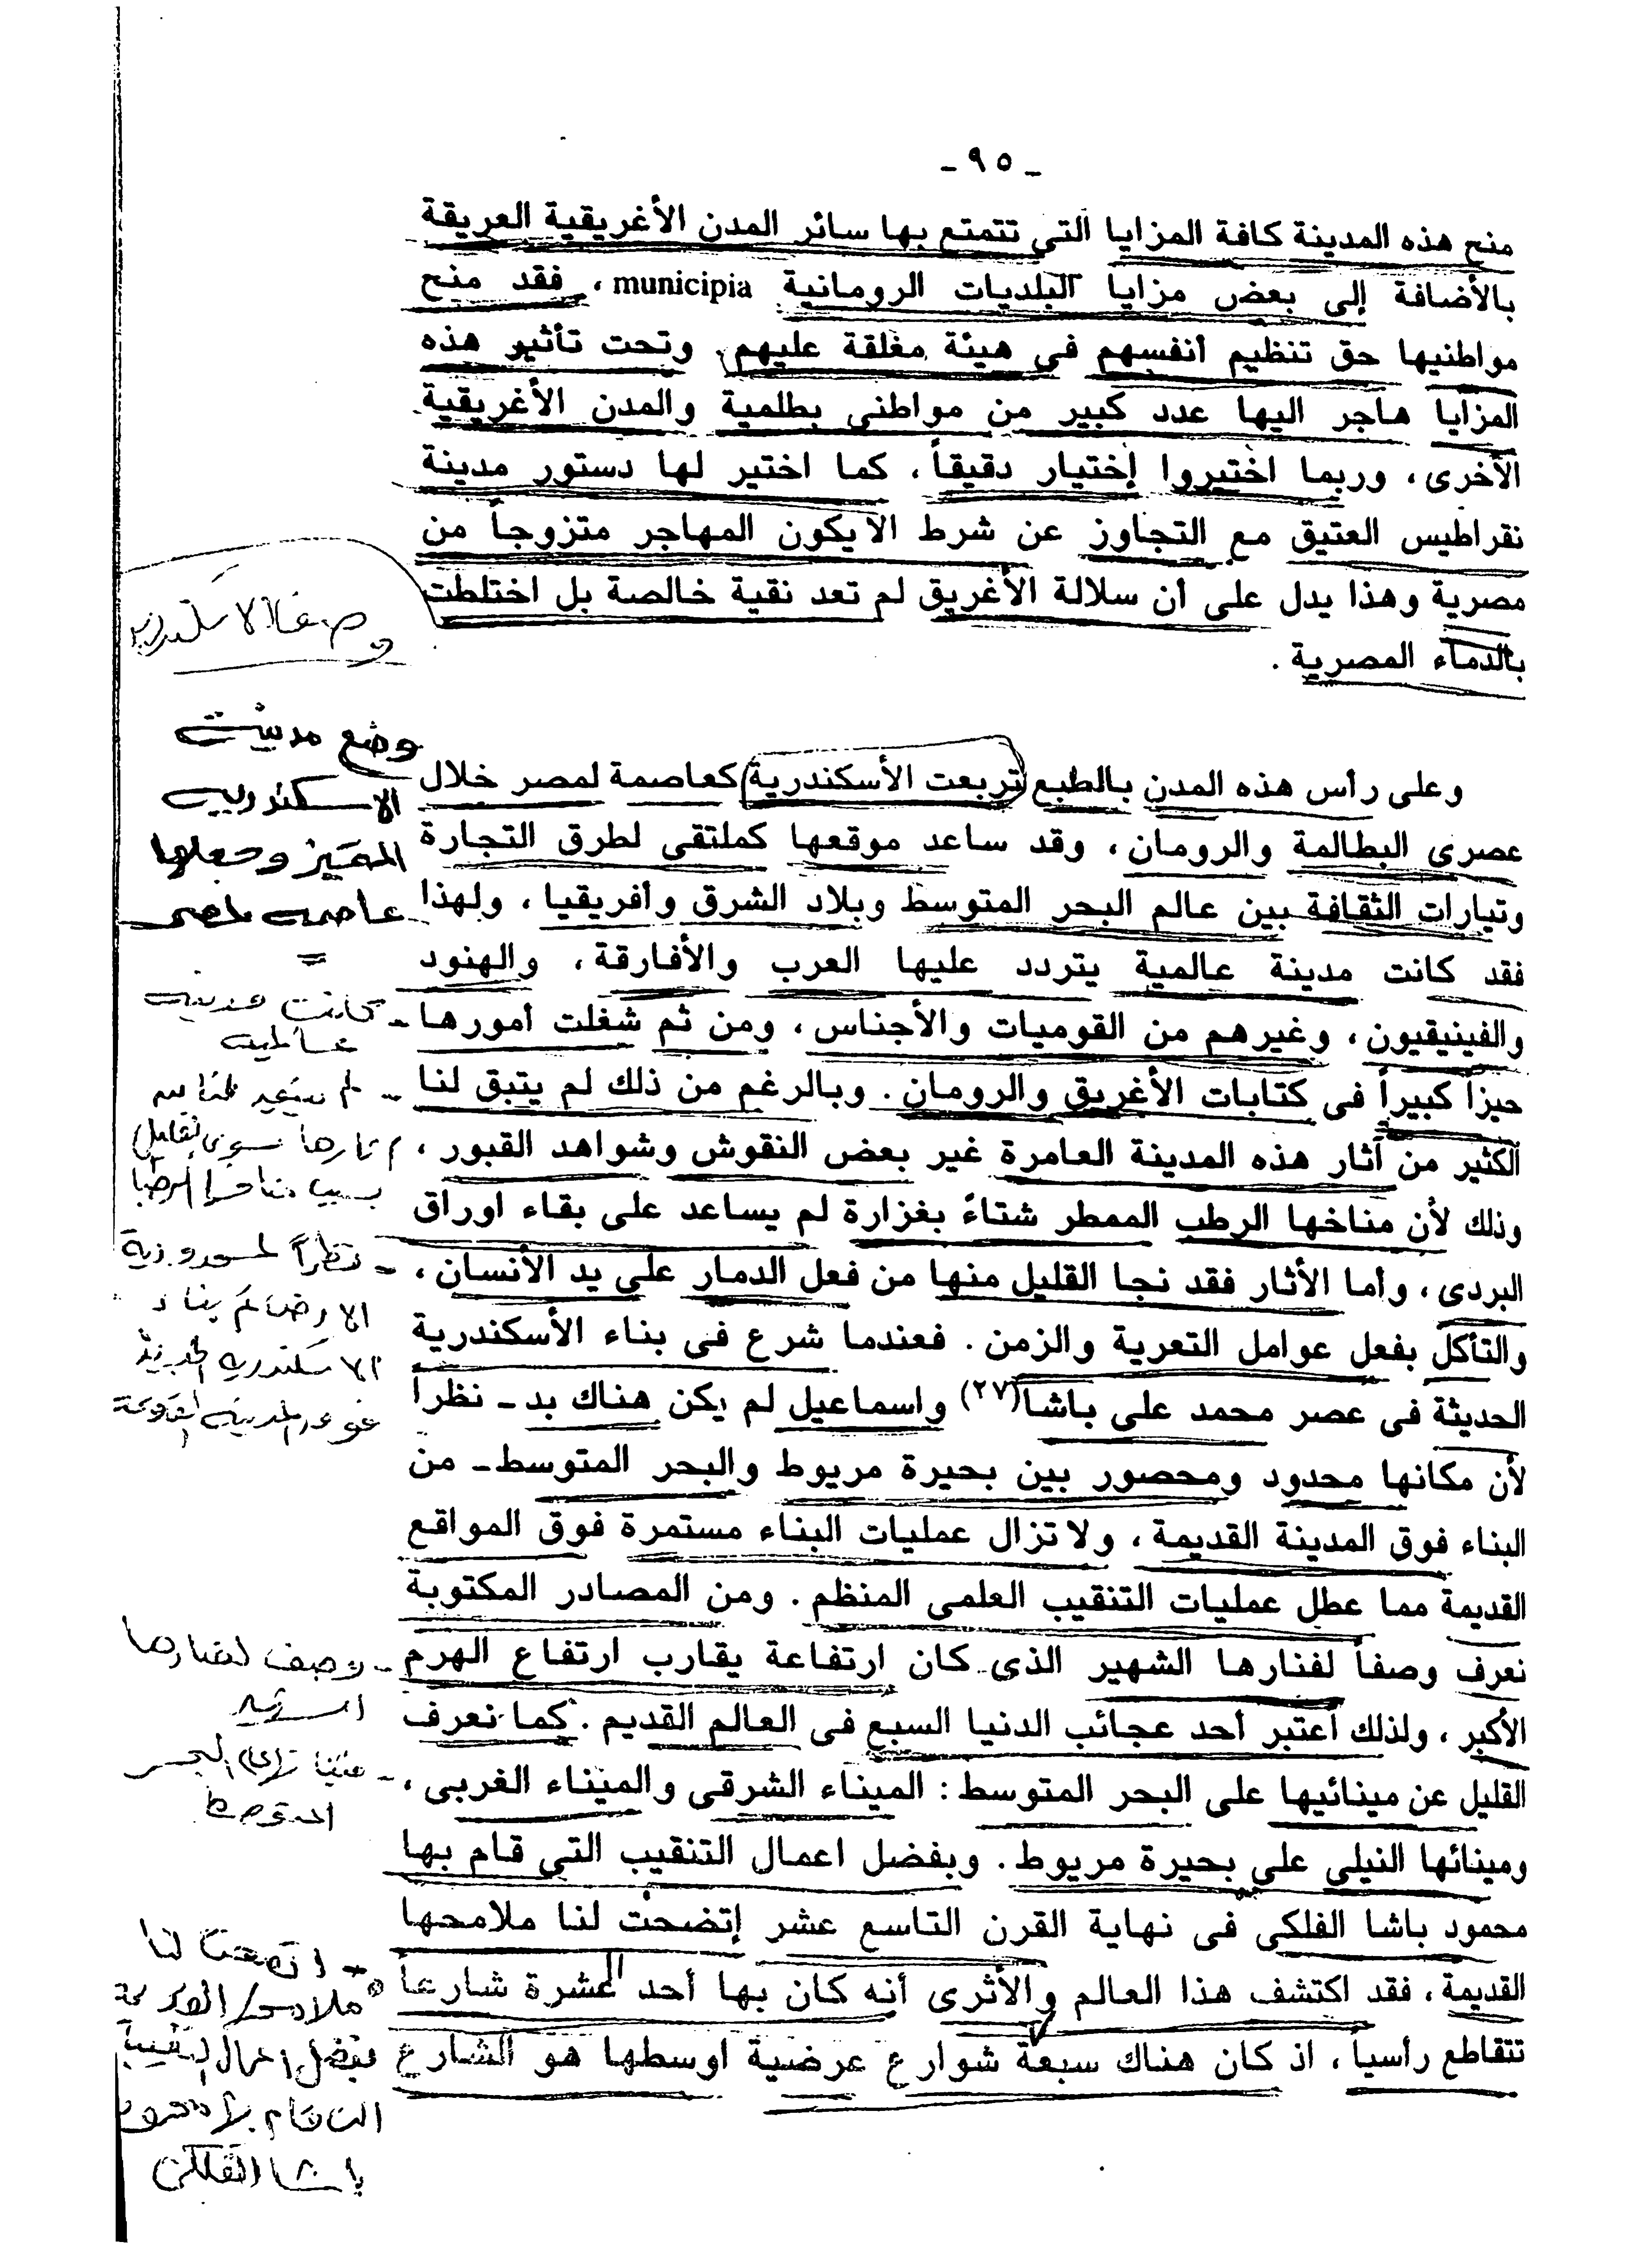 - ٩٥ -
منح هذه المدينة كافة المزايا التي تتمتع بها سائر المدن الأغريقية العريقة
بالأضافة إلى بعض مزايا البلديات الرومانية municipia ، فقد منح
مواطنيها حق تنظيم أنفسهم فى هيئة مغلقة عليهم . وتحت تأثير هذه
المزايا هاجر اليها عدد كبير من مواطنى بطلمية والمدن الأغريقية
الأخرى ، وربما اختيروا إختيار دقيقاً ، كما اختير لها دستور مدينة
نقراطيس العتيق مع التجاوز عن شرط الا يكون المهاجر متزوجاً من
مصرية وهذا يدل على أن سلالة الأغريق لم تعد نقية خالصة بل اختلطت
بالدماء المصرية .
وصف الاسكندرية
وعلى رأس هذه المدن بالطبع تربعت الأسكندرية كعاصمة لمصر خلال
عصرى البطالمة والرومان ، وقد ساعد موقعها كملتقى لطرق التجارة
وتيارات الثقافة بين عالم البحر المتوسط وبلاد الشرق وأفريقيا ، ولهذا
فقد كانت مدينة عالمية يتردد عليها العرب والأفارقة ، والهنود
والفينيقيون ، وغيرهم من القوميات والأجناس ، ومن ثم شغلت أمورها
حيزاً كبيراً فى كتابات الأغريق والرومان . وبالرغم من ذلك لم يتبق لنا
الكثير من آثار هذه المدينة العامرة غير بعض النقوش وشواهد القبور ،
وذلك لأن مناخها الرطب الممطر شتاءً بغزارة لم يساعد على بقاء اوراق
البردى ، وأما الأثار فقد نجا القليل منها من فعل الدمار على يد الأنسان ،
والتأكل بفعل عوامل التعرية والزمن . فعندما شرع فى بناء الأسكندرية
الحديثة فى عصر محمد على باشا(٢٧) واسماعيل لم يكن هناك بد ـ نظراً
لأن مكانها محدود ومحصور بين بحيرة مريوط والبحر المتوسط ـ من
البناء فوق المدينة القديمة ، ولا تزال عمليات البناء مستمرة فوق المواقع
القديمة مما عطل عمليات التنقيب العلمى المنظم . ومن المصادر المكتوبة
نعرف وصفاً لفنارها الشهير الذى كان ارتفاعة يقارب ارتفاع الهرم
الأكبر ، ولذلك أعتبر أحد عجائب الدنيا السبع فى العالم القديم . كما نعرف
القليل عن مينائيها على البحر المتوسط : الميناء الشرقى والميناء الغربى ،
ومينائها النيلى على بحيرة مريوط . وبفضل اعمال التنقيب التي قام بها
محمود باشا الفلكى فى نهاية القرن التاسع عشر إتضحت لنا ملامحها
القديمة ، فقد اكتشف هذا العالم والأثرى أنه كان بها أحد عشرة شارعاً
تتقاطع رأسياً ، اذ كان هناك سبعة شوارع عرضية اوسطها هو الشارع
وضع مدينة
الاسكندرية
المميز وجعلها
عاصمة لمصر
- كانت مدينة
عالمية
- نظراً لمحدودية
الاسكندرية الحديثة
- وصف لفنارها
الشهير
البحر
المتوسط
- اتضحت لنا
ملامحها القديمة
بفضل اعمال التنقيب
التى قام بها محمود
باشا الفلكى